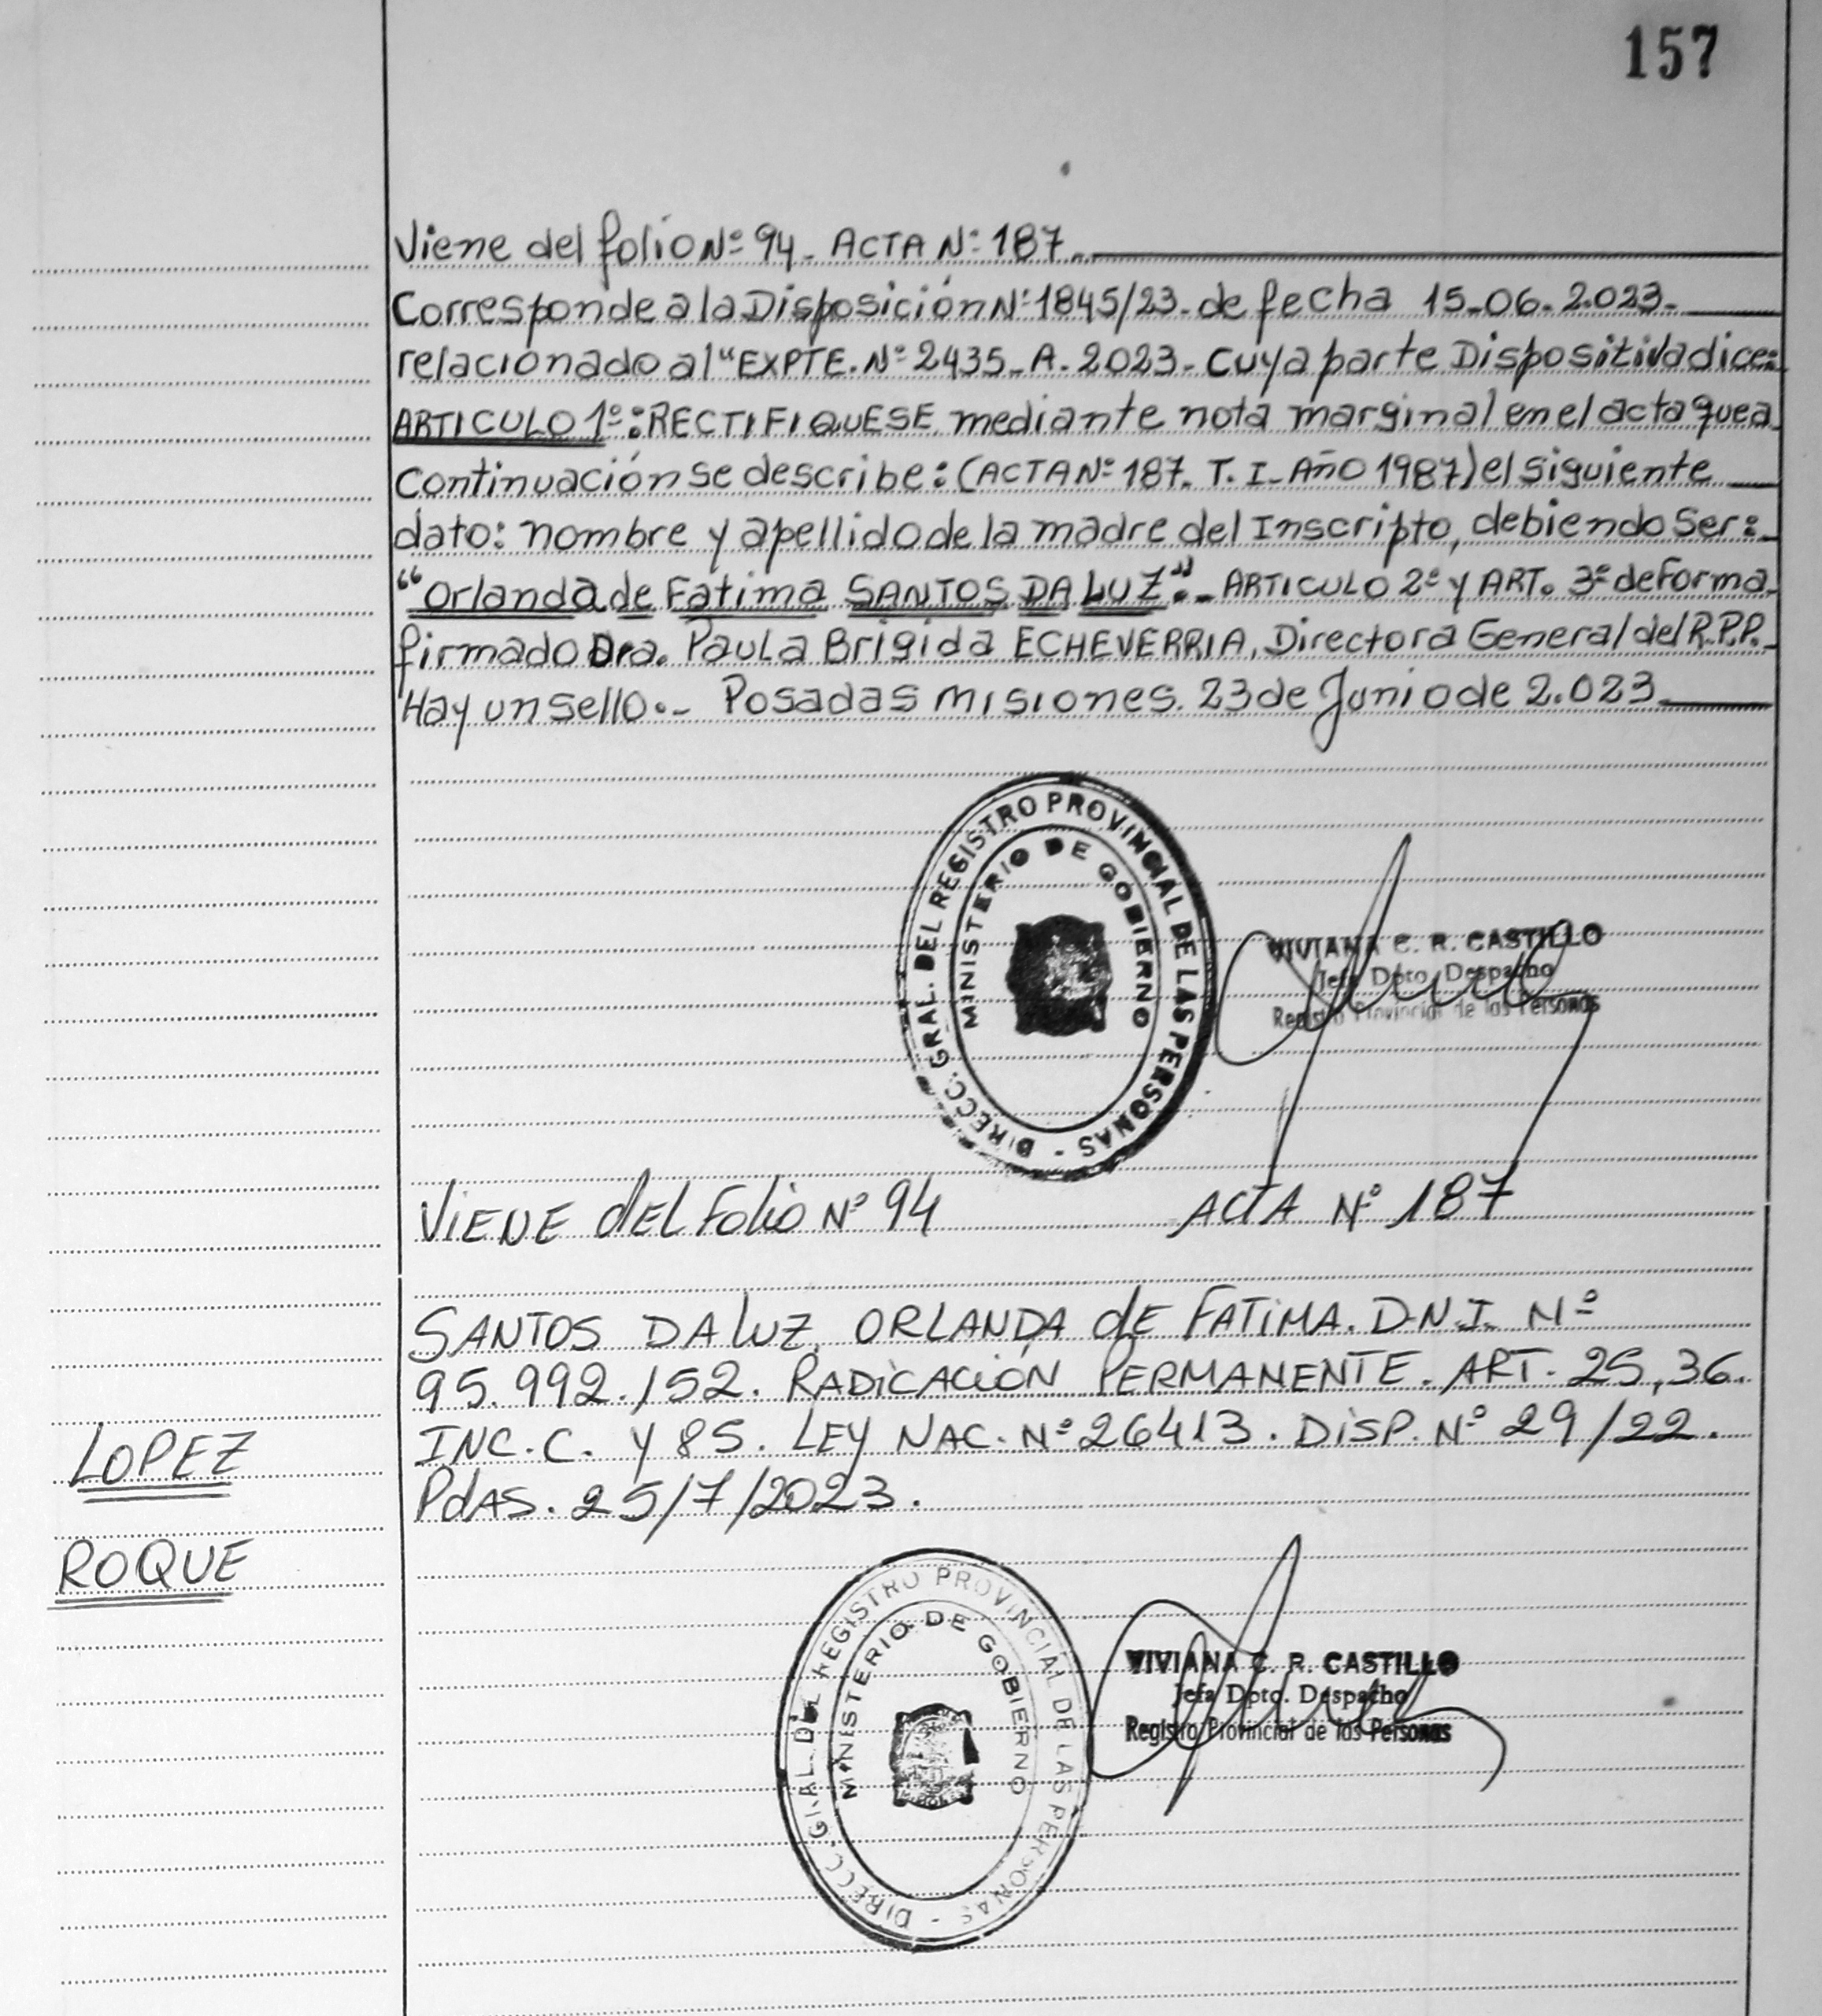 157
Viene del folio Nº 94_ ACTA Nº 187._
Corresponde a la Disposición Nº 1845/23_ de fecha 15_06_2.023_
relacionado al "EXPTE. Nº 2435_A_2023_ Cuya parte Dispositiva dice:
ARTICULO 1º: RECTIFIQUESE mediante nota marginal en el acta que a
Continuación se describe: (ACTA Nº 187_ T. I_ Año 1987) el siguiente
dato: nombre y apellido de la madre del Inscripto, debiendo Ser:
"Orlanda de Fatima SANTOS DA LUZ"._ ARTICULO 2º y ART. 3º de Forma
firmado Dra. Paula Brigida ECHEVERRIA, Directora General del R.P.P.
Hay un sello._ Posadas misiones. 23 de Junio de 2.023_
DIRECC. GRAL. DEL REGISTRO PROVINCIAL DE LAS PERSONAS -
MINISTERIO DE GOBIERNO
VIVIANA C. R. CASTILLO
Jefa Dpto. Despacho
Registro Provincial de las Personas
VIENE dEL Folio Nº 94 ACTA Nº 187
SANTOS DA LUZ, ORLANDA dE FATIMA. D.N.I. Nº
95.992.152. RADICACIÓN PERMANENTE. ART. 25, 36.
INC. C. Y 85. LEY NAC. Nº 26413. DISP. Nº 29/22.
PdAS. 25/7/2023.
LOPEZ
ROQUE
DIRECC. GRAL. DEL REGISTRO PROVINCIAL DE LAS PERSONAS -
MINISTERIO DE GOBIERNO
VIVIANA C. R. CASTILLO
Jefa Dpto. Despacho
Registro Provincial de las Personas